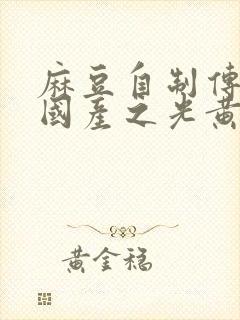 麻豆自制傳
國產之光黃
黃金稳